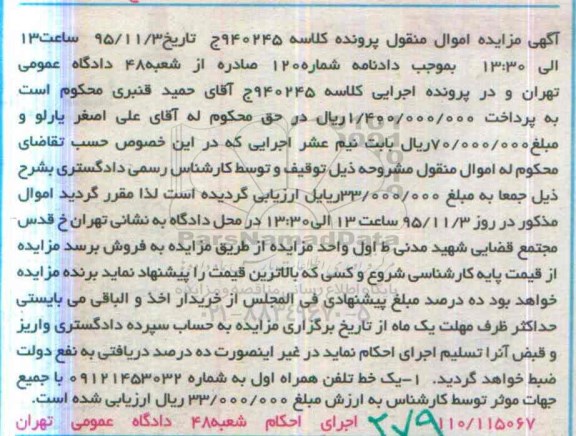 آگهی مزایده اموال منقول پرونده کلاسه ۹۴۰۲۴۵ج تاریخ۹۵/۱۱/۳ ساعت۱۳
الی ۱۳:۳۰ بموجب دادنامه شماره۱۲۰ صادره از شعبه۴۸ دادگاه عمومی
تهران و در پرونده اجرایی کلاسه ۹۴۰۲۴۵ج آقای حمید قنبری محکوم است
به پرداخت ۱/۴۰۰/۰۰۰/۰۰۰ریال در حق محکوم له آقای علی اصغر یارلو و
مبلغ۷۰/۰۰۰/۰۰۰ریال بابت نیم عشر اجرایی که در این خصوص حسب تقاضای
محکوم له اموال منقول مشروحه ذیل توقیف و توسط کارشناس رسمی دادگستری بشرح
ذیل جمعا به مبلغ ۳۳/۰۰۰/۰۰۰ریایل ارزیابی گردیده است لذا مقرر گردید اموال
مذکور در روز ۹۵/۱۱/۳ ساعت ۱۳ الی۱۳:۳۰ در محل دادگاه به نشانی تهران خ قدس
مجتمع قضایی شهید مدنی ط اول واحد مزایده از طریق مزایده به فروش برسد مزایده
از قیمت پایه کارشناسی شروع و کسی که بالاترین قیمت را پیشنهاد نماید برنده مزایده
خواهد بود ده درصد مبلغ پیشنهادی فی المجلس از خریدار اخذ و الباقی می بایستی
حداکثر ظرف مهلت یک ماه از تاریخ برگزاری مزایده به حساب سپرده دادگستری واریز
و قبض آنرا تسلیم اجرای احکام نماید در غیر اینصورت ده درصد دریافتی به نفع دولت
ضبط خواهد گردید. ۱-یک خط تلفن همراه اول به شماره ۰۹۱۲۱۴۵۳۰۳۲ با جمیع
جهات موثر توسط کارشناس به ارزش مبلغ ۳۳/۰۰۰/۰۰۰ ریال ارزیابی شده است.
۱۱۰/۱۱۵۰۶۷ ۲۷۹ اجرای احکام شعبه۴۸ دادگاه عمومی تهران
ParsNamadData
پایگاه اطلاع رسانی مناقصه و مزایده
۰۲۱-۸۸۳۴۹۶۷۰-۵